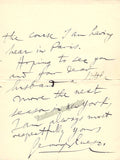 the course I am having
here in Paris.
Hoping to see you
and your dear
husband a little
more the next
season in New York,
I am always most
respectfully yours